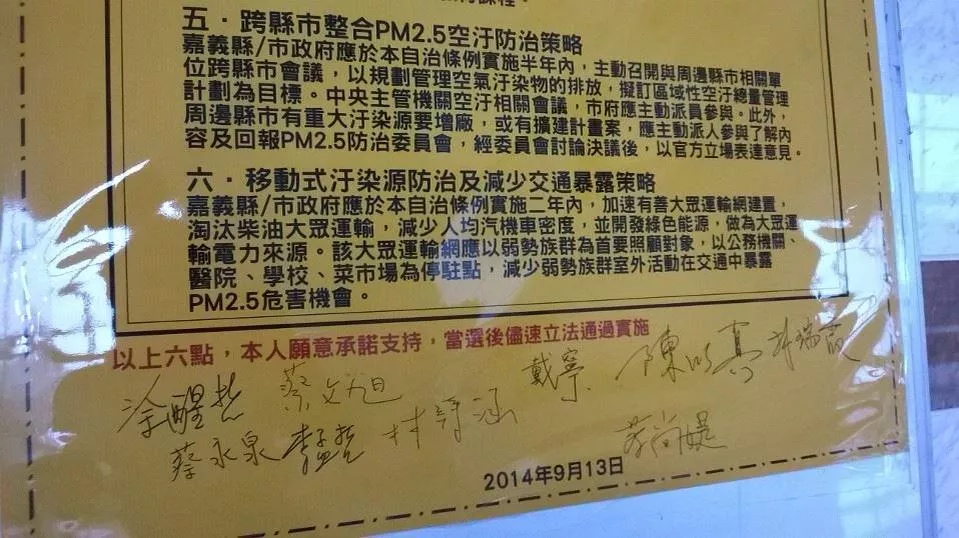 五．跨縣市整合PM2.5空汙防治策略
嘉義縣/市政府應於本自治條例實施半年內，主動召開與周邊縣市相關單
位跨縣市會議，以規劃管理空氣汙染物的排放，擬訂區域性空汙總量管理
計劃為目標。中央主管機關空汙相關會議，市府應主動派員參與。此外，
周邊縣市有重大汙染源要增廠，或有擴建計畫案，應主動派人參與了解內
容及回報PM2.5防治委員會，經委員會討論決議後，以官方立場表達意見。
六．移動式汙染源防治及減少交通暴露策略
嘉義縣/市政府應於本自治條例實施二年內，加速有善大眾運輸網建置，
淘汰柴油大眾運輸，減少人均汽機車密度，並開發綠色能源，做為大眾運
輸電力來源。該大眾運輸網應以弱勢族群為首要照顧對象，以公務機關、
醫院、學校、菜市場為停駐點，減少弱勢族群室外活動在交通中暴露
PM2.5危害機會。
以上六點，本人願意承諾支持，當選後儘速立法通過實施
涂醒哲 蔡文旭 戴寧
蔡永泉
2014年9月13日